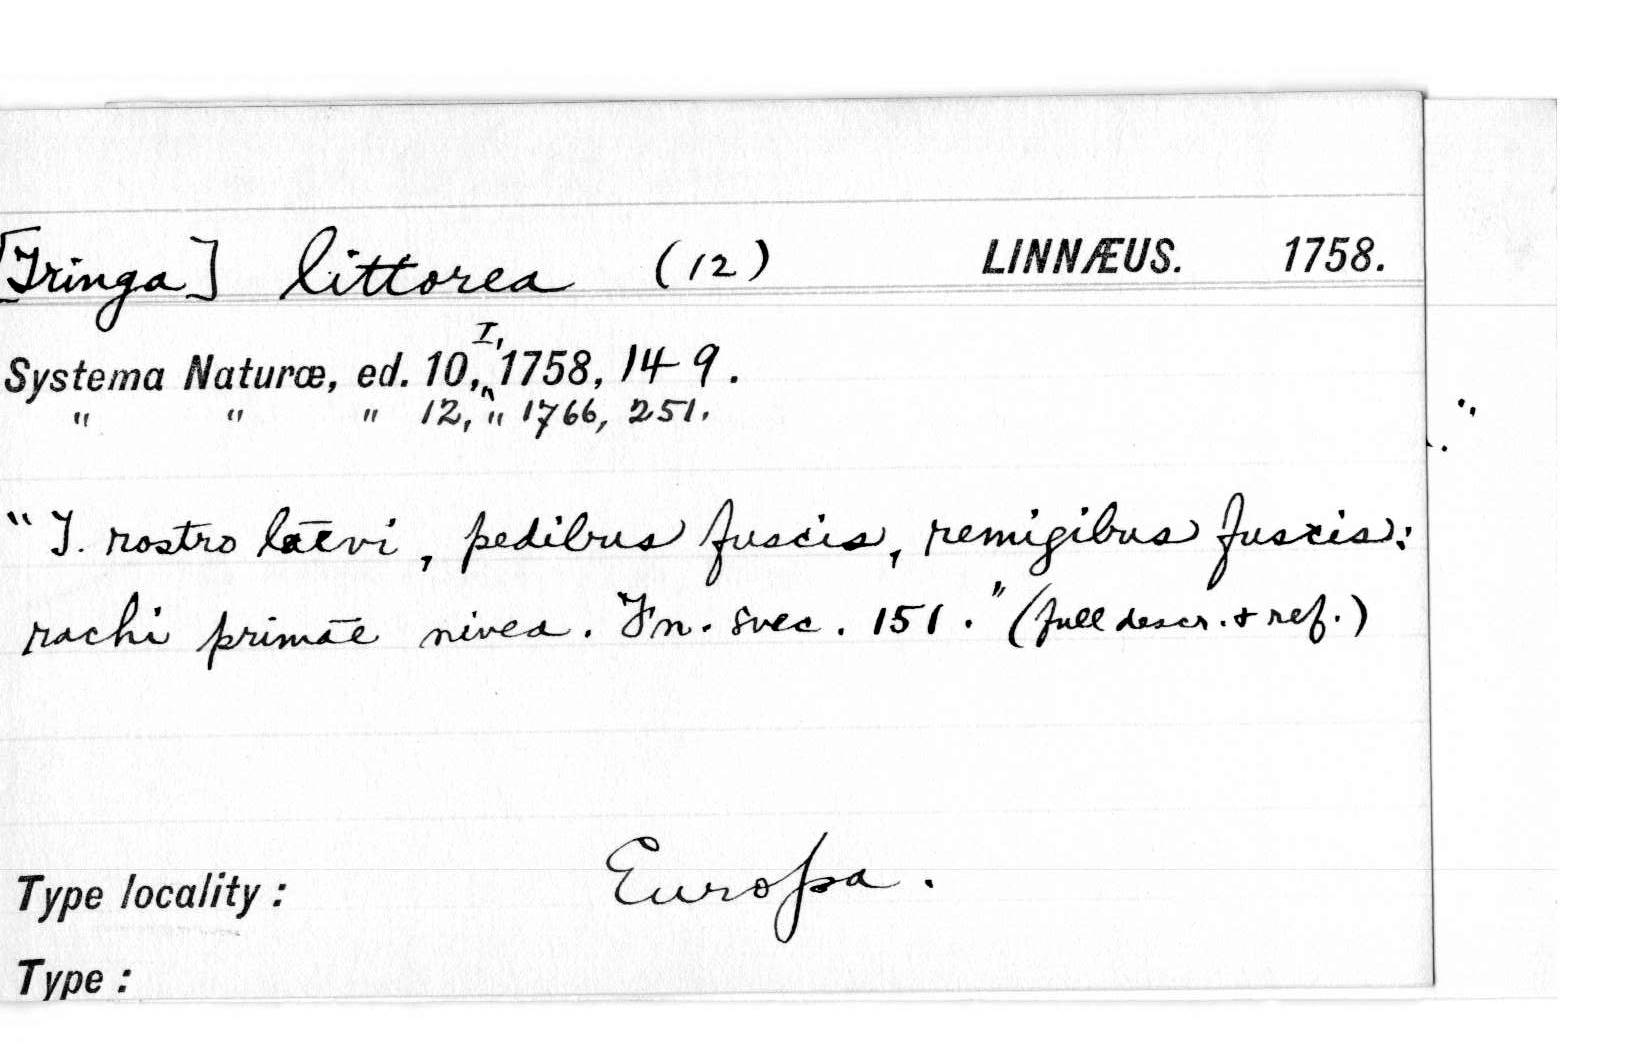 [Tringa] littorea (12) LINNÆUS. 1758.
Systema Naturæ, ed. 10, I, 1758, 149.
" " " 12, " 1766, 251.
"T. rostro lævi, pedibus fuscis, remigibus fuscis:
rachi primæ nivea. Fn. svec. 151." (full descr. & ref.)
Type locality: Europa.
Type: